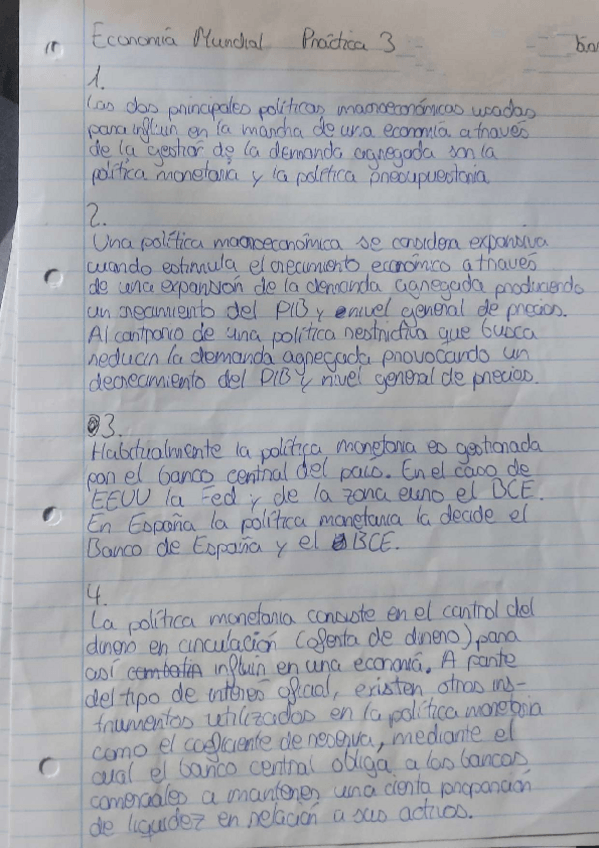 Economía Mundial Práctica 3
1.
Las dos principales políticas macroeconómicas usadas
para influir en la marcha de una economía a través
de la gestión de la demanda agregada son la
política monetaria y la política presupuestaria
2.
Una política macroeconómica se considera expansiva
cuando estimula el crecimiento económico a través
de una expansión de la demanda agregada produciendo
un crecimiento del PIB y nivel general de precios.
Al contrario de una política restrictiva que busca
reducir la demanda agregada provocando un
decrecimiento del PIB y nivel general de precios.
3.
Habitualmente la política monetaria es gestionada
por el banco central del país. En el caso de
EEUU la Fed y de la zona euro el BCE.
En España la política monetaria la decide el
Banco de España y el BCE.
4.
La política monetaria consiste en el control del
dinero en circulación (oferta de dinero) para
así influir en una economía. A parte
del tipo de interés oficial, existen otros ins-
trumentos utilizados en la política monetaria
como el coeficiente de reserva, mediante el
cual el banco central obliga a los bancos
comerciales a mantener una cierta proporción
de liquidez en relación a sus activos.